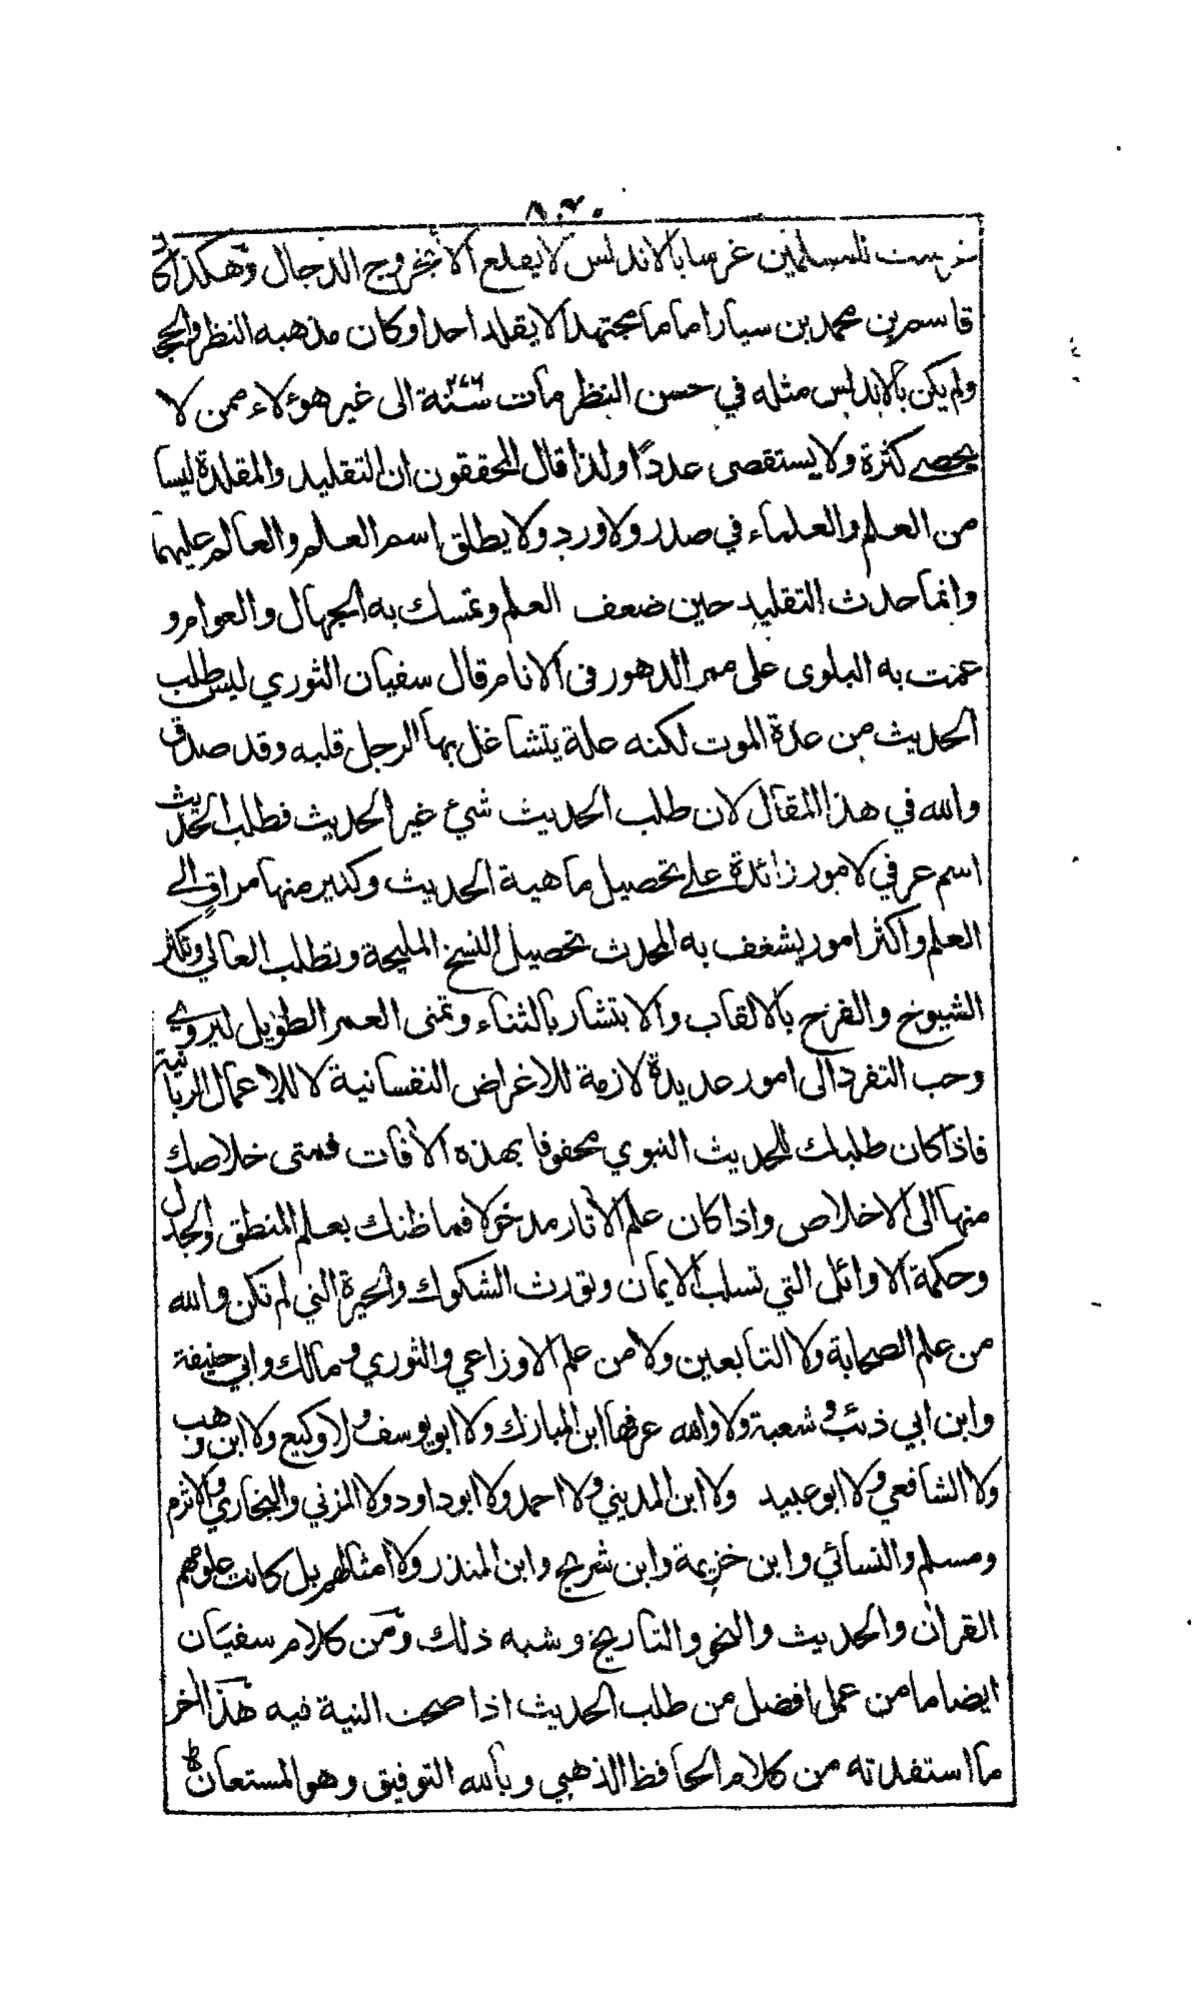 ٨٠٢٠
غرست للمسلمين غرسا بالاندلس لا يقلع الا بخروج الدجال وهكذا كان
قاسم بن محمد بن سيار اماما مجتهدا لا يقلد احدا وكان مذهبه النظر والحجج
ولم يكن بالاندلس مثله في حسن النظر مات سنة ٢٧٦ الى غير هؤلاء ممن لا
يحصى كثرة ولا يستقصى عددًا ولذا قال المحققون ان التقليد والمقلدة ليسا
من العلم والعلماء في صدر ولا ورد ولا يطلق اسم العلم والعالم عليهما
وانما حدث التقليد حين ضعف العلم وتمسك به الجهال والعوام و
عمت به البلوى على ممر الدهور فى الانام قال سفيان الثوري ليس طلب
الحديث من عدة الموت لكنه علة يتشاغل بها الرجل قلبه وقد صدق
والله في هذا المقال لان طلب الحديث شيء غير الحديث فطلب الحديث
اسم عرفي لامور زائدة على تحصيل ماهية الحديث وكثير منها مراقٍ الى
العلم واكثر امور يشغف به المحدث تحصيل النسخ المليحة وتطلب العالي وتكثر
الشيوخ والفرح بالالقاب والابتشار بالثناء وتمنى العمر الطويل ليروي
وحب التفرد الى امور عديدة لازمة للاغراض النفسانية لا للاعمال الربانية
فاذا كان طلبك للحديث النبوي محفوفا بهذه الآفات فمتى خلاصك
منها الى الاخلاص واذا كان علم الآثار مدخولا فما ظنك بعلم المنطق والجدل
وحكمة الاوائل التي تسلب الايمان وتورث الشكوك والحيرة التي لم تكن والله
من علم الصحابة ولا التابعين ولا من علم الاوزاعي والثوري ومالك وابي حنيفة
وابن ابي ذئب وشعبة ولا والله عرفها ابن المبارك ولا ابو يوسف ولا وكيع ولا ابن وهب
ولا الشافعي ولا ابو عبيد ولا ابن المديني ولا احمد ولا ابو داود ولا المزني والبخاري ولا الاثرم
ومسلم والنسائي وابن خزيمة وابن شريح وابن المنذر ولا امثالهم بل كانت علومهم
القرآن والحديث والنحو والتاريخ وشبه ذلك ومن كلام سفيان
ايضا ما من عمل افضل من طلب الحديث اذا صحت النية فيه هذا آخر
ما استفدته من كلام الحافظ الذهبي وبالله التوفيق وهو المستعان